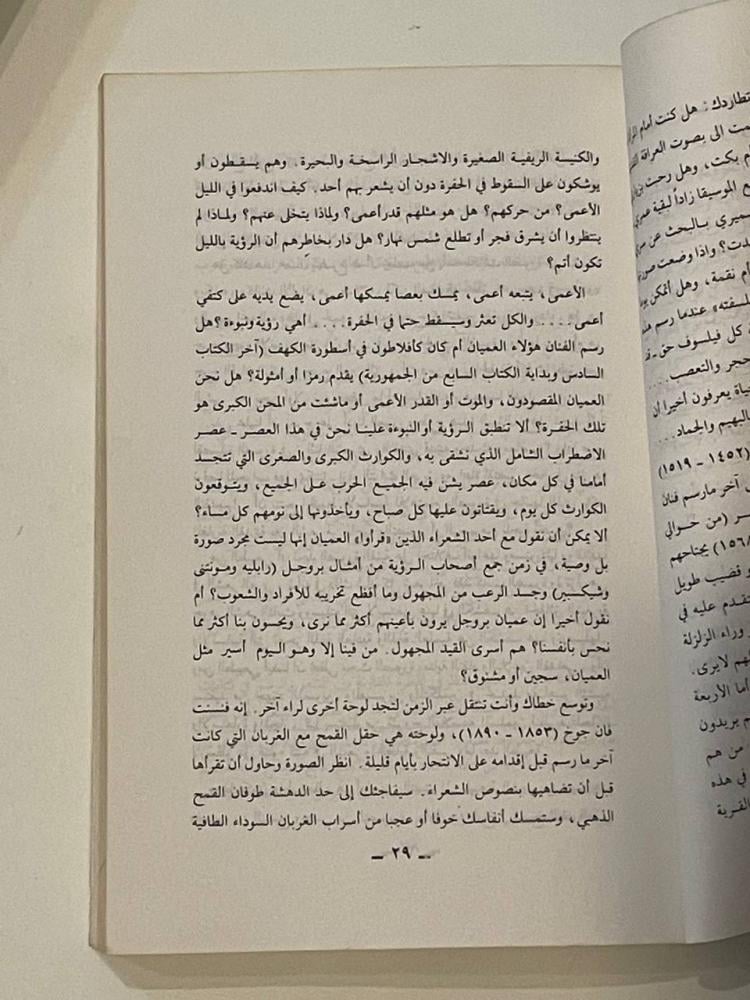 والكنيسة الريفية الصغيرة والاشجار الراسخة والبحيرة. وهم يسقطون أو
يوشكون على السقوط في الحفرة دون أن يشعر بهم أحد. كيف اندفعوا في الليل
الأعمى؟ من حركهم؟ هل هو مثلهم قدر أعمى؟ ولماذا يتخلى عنهم؟ ولماذا لم
ينتظروا أن يشرق فجر أو تطلع شمس نهار؟ هل دار بخاطرهم أن الرؤية بالليل
تكون أتم؟
الأعمى، يتبعه أعمى، يمسك بعصا يمسكها أعمى، يضع يديه على كتفي
أعمى.... والكل تعثر وسيسقط حتما في الحفرة.... أهي رؤية ونبوءة؟ هل
رسم الفنان هؤلاء العميان أم كان كأفلاطون في أسطورة الكهف (آخر الكتاب
السادس وبداية الكتاب السابع من الجمهورية) يقدم رمزا أو أمثولة؟ هل نحن
العميان المقصودون، والموت أو القدر الأعمى أو ماشئت من المحن الكبرى هو
تلك الحفرة؟ ألا تنطبق الرؤية أو النبوءة علينا نحن في هذا العصر ـ عصر
الاضطراب الشامل الذي نشقى به، والكوارث الكبرى والصغرى التي تتجسد
أمامنا في كل مكان، عصر يشن فيه الجميع الحرب على الجميع، ويتوقعون
الكوارث كل يوم، ويقتاتون عليها كل صباح، ويأخذونها إلى نومهم كل مساء؟
ألا يمكن أن نقول مع أحد الشعراء الذين «قرأوا» العميان إنها ليست مجرد صورة
بل وصية، في زمن جمع أصحاب الرؤية من أمثال بروجل (رابليه ومونتنى
وشيكسبير) وجسد الرعب من المجهول وما أفظع تخريبه للأفراد والشعوب؟ أم
نقول أخيرا إن عميان بروجل يرون بأعينهم أكثر مما نرى، ويحسون بنا أكثر مما
نحس بأنفسنا؟ هم أسرى القيد المجهول. من فينا إلا وهو اليوم أسير مثل
العميان، سجين أو مشنوق؟
وتوسع خطاك وأنت تنتقل عبر الزمن لتجد لوحة أخرى لراء آخر. إنه فنسنت
فان جوخ (١٨٥٣ ـ ١٨٩٠)، ولوحته هي حقل القمح مع الغربان التي كانت
آخر ما رسم قبل إقدامه على الانتحار بأيام قليلة. انظر الصورة وحاول أن تقرأها
قبل أن تضاهيها بنصوص الشعراء. سيفاجئك إلى حد الدهشة طوفان القمح
الذهبي، وستمسك أنفاسك خوفا أو عجبا من أسراب الغربان السوداء الطافية
ـ ٢٩ ـ
تطاردك: هل كنت أمام
الى بصوت العرافة
بكت، وهل رحت
الموسيقا زاداً لبقية
بالبحث عن
وإذا وضعت
أم نقمة، وهل
عندما رسم
كل فيلسوف
حجر والتعصب....
يعرفون أخيرا أن
البهيم والجماد...
(١٤٥٢ ـ ١٥١٩)
آخر مارسم فنان
(من حوالي
يجتاحهم
قضيب طويل
تقدم عليه في
وراء الزلزلة
لايرى.
أما الأربعة
يريدون
من هم
في هذه
القرية